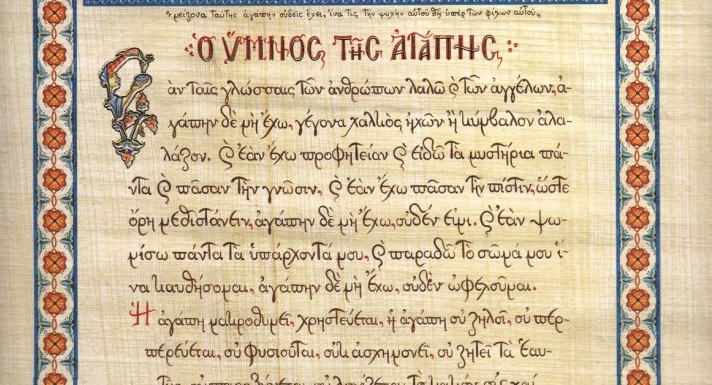 μείζονα ταύτης ἀγάπην οὐδεὶς ἔχει, ἵνα τις τὴν ψυχὴν αὐτοῦ θῇ ὑπὲρ τῶν φίλων αὐτοῦ
Ὁ ὝΜΝΟΣ ΤΗΣ ἈΓΆΠΗΣ
Ἐὰν ταῖς γλώσσαις τῶν ἀνθρώπων λαλῶ ϗ τῶν ἀγγέλων, ἀ-
γάπην δὲ μὴ ἔχω, γέγονα χαλκὸς ἠχῶν ἢ κύμβαλον ἀλα-
λάζον. ϗ ἐὰν ἔχω προφητείαν ϗ εἰδῶ τὰ μυστήρια πά-
ντα ϗ πᾶσαν τὴν γνῶσιν, ϗ ἐὰν ἔχω πᾶσαν τὴν πίστιν, ὥστε
ὄρη μεθιστάνειν, ἀγάπην δὲ μὴ ἔχω, οὐδέν εἰμι. ϗ ἐὰν ψω-
μίσω πάντα τὰ ὑπάρχοντά μου, ϗ παραδῶ τὸ σῶμά μου ἵ-
να καυθήσομαι, ἀγάπην δὲ μὴ ἔχω, οὐδὲν ὠφελοῦμαι.
Ἡ ἀγάπη μακροθυμεῖ, χρηστεύεται, ἡ ἀγάπη οὐ ζηλοῖ, οὐ περ-
περεύεται, οὐ φυσιοῦται, οὐκ ἀσχημονεῖ, οὐ ζητεῖ τὰ ἑαυ-